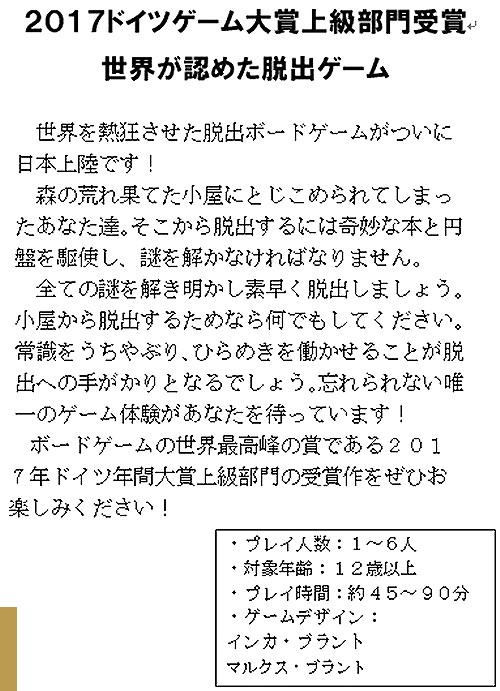 2017ドイツゲーム大賞上級部門受賞↵
世界が認めた脱出ゲーム
世界を熱狂させた脱出ボードゲームがついに
日本上陸です！
森の荒れ果てた小屋にとじこめられてしまっ
たあなた達。そこから脱出するには奇妙な本と円
盤を駆使し、謎を解かなければなりません。
全ての謎を解き明かし素早く脱出しましょう。
小屋から脱出するためなら何でもしてください。
常識をうちやぶり、ひらめきを働かせることが脱
出への手がかりとなるでしょう。忘れられない唯
一のゲーム体験があなたを待っています！
ボードゲームの世界最高峰の賞である２０１
７年ドイツ年間大賞上級部門の受賞作をぜひお
楽しみください！
・プレイ人数：１～６人
・対象年齢：１２歳以上
・プレイ時間：約４５～９０分
・ゲームデザイン：
インカ・ブラント
マルクス・ブラント